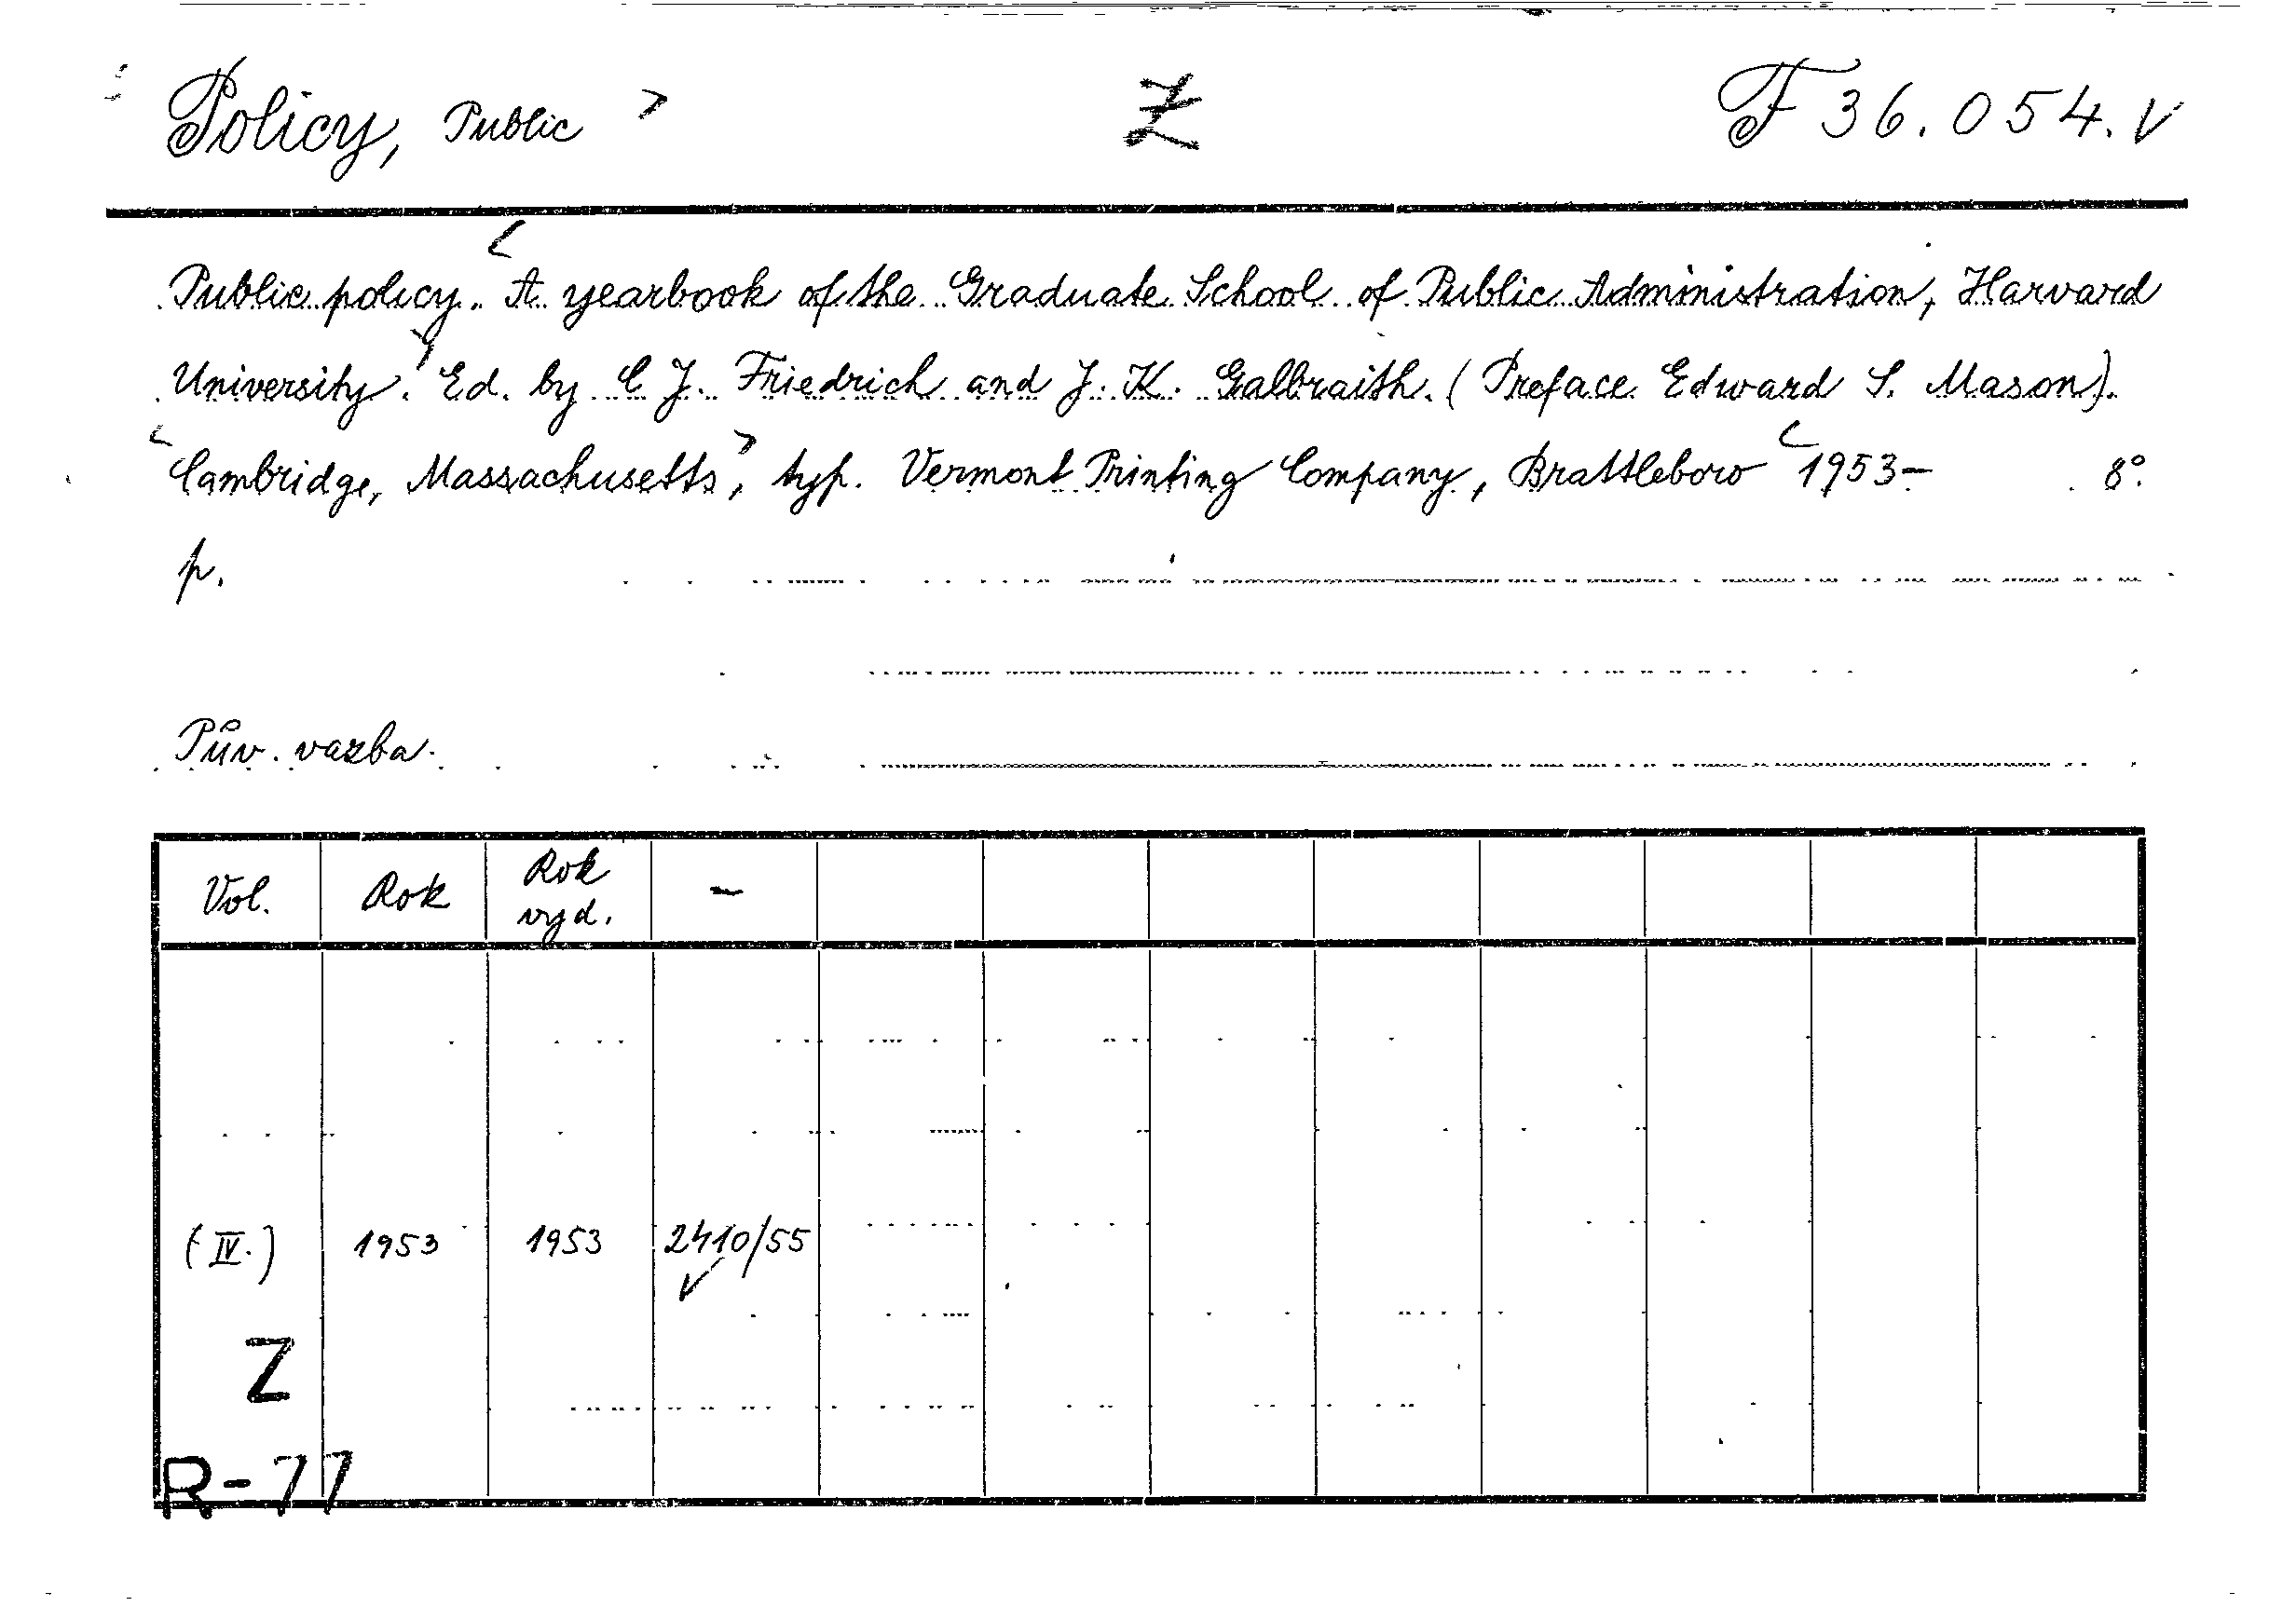 Policy, Public Z F 36.054.
Public policy. A yearbook of the Graduate School of Public Administration, Harvard
University. Ed. by C J. Friedrich and J. K. Galbraith. (Preface Edward S. Mason).
Cambridge, Massachusetts, typ. Vermont Printing Company, Brattleboro 1953- 8°.
p.
Pův. vazba.
Vol. Rok Rok vyd. -
(IV.) 1953 1953 2410/55
Z
R-77